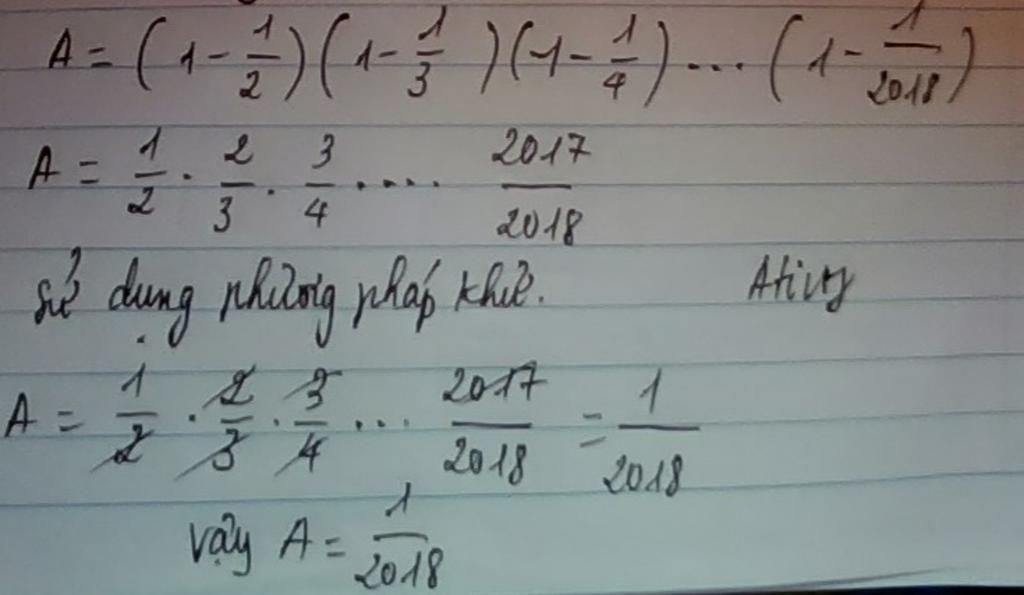 A = (1 - 1/2)(1 - 1/3)(1 - 1/4) ... (1 - 1/2018)
A = 1/2 . 2/3 . 3/4 .... 2017/2018
sử dụng phương pháp khử.
A = 1/2 . 2/3 . 3/4 ... 2017/2018 = 1/2018
vậy A = 1/2018